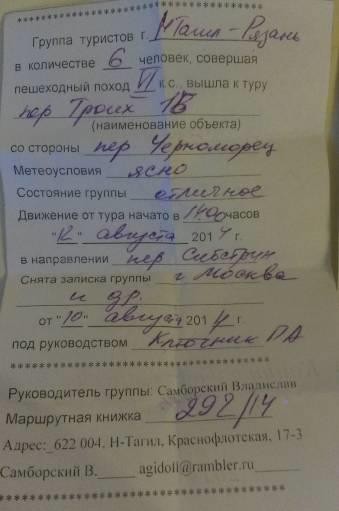 ************************************
Группа туристов г. Н Тагил - Рязань
в количестве 6 человек, совершая
пешеходный поход VI к.с., вышла к туру
пер Троих 1Б
(наименование объекта)
со стороны пер Черноморец
Метеоусловия ясно
Состояние группы отличное
Движение от тура начато в 14:00 часов
"12" августа 2014 г.
в направлении пер Сибструн
Снята записка группы г Москва
и др.
от "10" августа 2014 г.
под руководством Ключник ПА
************************************
Руководитель группы: Самборский Владислав
Маршрутная книжка 292/14
Адрес:_622 004, Н-Тагил, Краснофлотская, 17-3
Самборский В._____ agidoll@rambler.ru_____
************************************